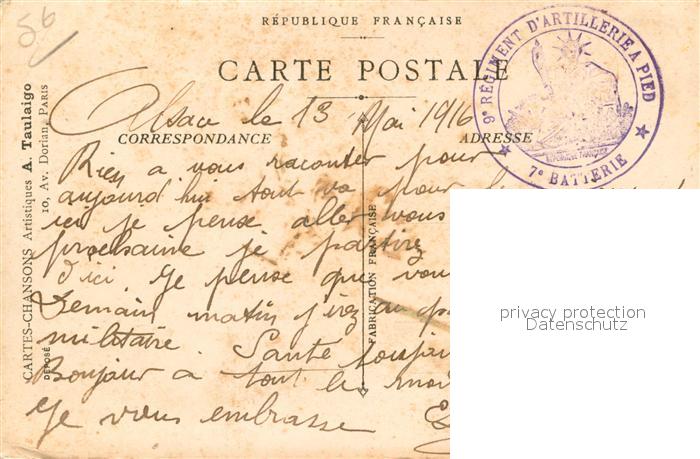 56
RÉPUBLIQUE FRANÇAISE
CARTE POSTALE
9e RÉGIMENT D'ARTILLERIE A PIED
7e BATTERIE
Alsace le 13 Mai 1916
CORRESPONDANCE
ADRESSE
Rien a vous raconter pour
aujourd'hui tout va pour
ici je pense aller vous
prochaine je partire
d'ici. Je pense que vou
Demain matin j'irez au
militaire. Santé toujou
Bonjour a tout le mon
Je vous embrasse
CARTES-CHANSONS Artistiques A. Taulaigo
10, Av. Dorian, PARIS
DÉPOSÉ
FABRICATION FRANÇAISE
privacy protection
Datenschutz